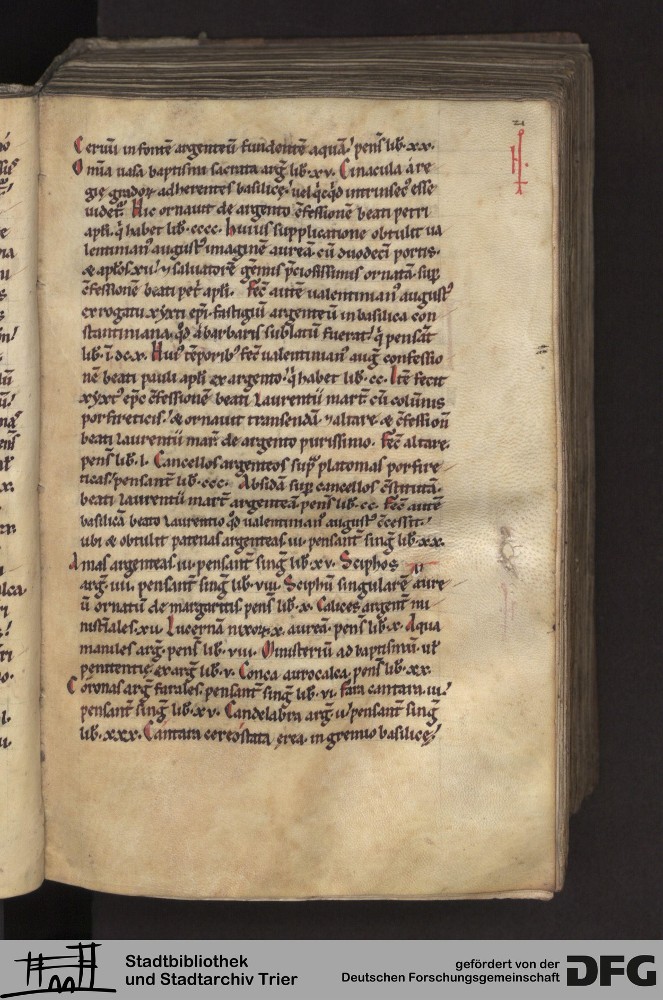 21
H.
Ceruū in fontē argenteū fundentē aquā, penſ lib· xx·
Omīa uaſa baptiſmi ſacrata arḡ lib· xv· Cinacula a re
gię gradoꝝ adherenteſ baſilicę, uel qͥcqͥd intrinſecꝰ eſſe
uidetᷣ. Hic ornauit de argento ꝯfeſſionē beati petri
apłi· q̄ habet lib· cccc· Huiuſ ſupplicatione obtulit ua
lentinianꝰ auguſtꝰ imaginē aureā cū duodecī portiſ·
& apłoſ xii· ⁊ saluatorē gēmiſ p̄cioſiſſimiſ ornatā· ſuꝑ
ꝯfeſſionē beati petͥ apłi· Fec̄ autē ualentinianꝰ auguſtꝰ
ex rogatu xyxti ep̄i· faſtigiū argenteū in baſilica con
ſtantiniana· qd̄ a barbariſ ſublatū fuerat, q̄ penſat̄
lib· ī· dc· x· Huiꝰ tēporibꝰ fec̄ ualentinianꝰ auḡ confeſſio
nē beati pauli apłi ex argento, q̄ habet lib· cc· Itē fecit
xyxtꝰ ep̄c ꝯfeſſionē beati laurentii mart̄ cū colūniſ
porfireticiſ, & ornauit tranſendā ⁊ altare & ꝯfeſſionē
beati laurentii mar̄t de argento puriſſimo· Fec̄ altare·
penſ lib· l· Cancelloſ argenteoſ ſuꝑ platomaſ porfire
ticaſ, penſant̄ lib· ccc· Abſidā ſuꝑ cancelloſ ꝯſtitutā·
beati laurentii mart̄ argenteā penſ lib· cc· Fec̄ autē
baſilicā beato laurentio qd̄ ualentinianꝰ auguſtꝰ ꝯceſſit,
ubi & obtulit patenaſ argenteaſ iii· penſant̄ ſing̃ lib· xx·
Amaſ argenteaſ iii· penſant̄ ſing̃ lib· xv· Sciphoſ
arg̃· iiii· penſant̄ ſing̃ lib· viii· Sciphū ſingularē aure
ū ornatū de margaritiſ penſ lib· x· Caliceſ argent̄ mi
niſt̄ialeſ· xii· Lucernā nixoꝝ· x· aureā· penſ lib· x· Aqua
manuleſ arg̃· penſ lib· viii· Miniſteriū ad baptiſmū· uł
penitentię· ex arg̃ lib· v· Conca aurocalca, penſ lib· xx·
Coronaſ arg̃ faraleſ penſant̄ ſing̃ lib· vi· Fara cantara· iii,
penſant̄ ſing̃ lib· xv· Candelabra arg̃· ii, penſant̄ ſing̃
lib· xxx· Cantara cereoſtata ęrea· in gremio baſilicę,
Stadtbibliothek
und Stadtarchiv Trier
gefördert von der
Deutschen Forschungsgemeinschaft
DFG